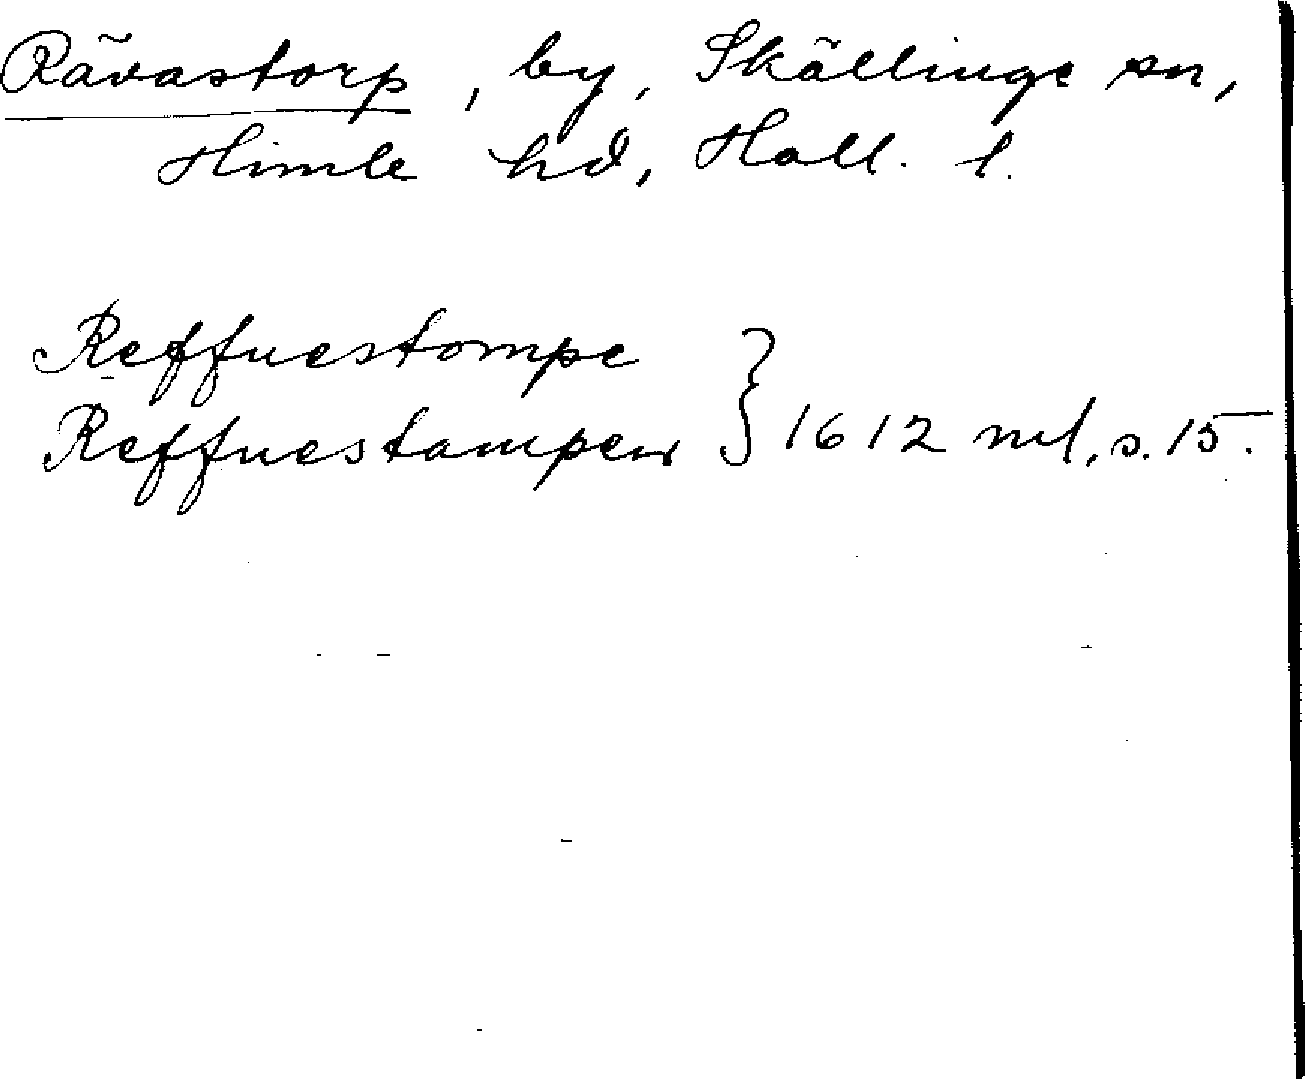 Rävastorp, by, Skällinge sn,
Himle hd, Hall. l.
Reffuestompe
Reffuestampen } 1612 ml, s. 15.